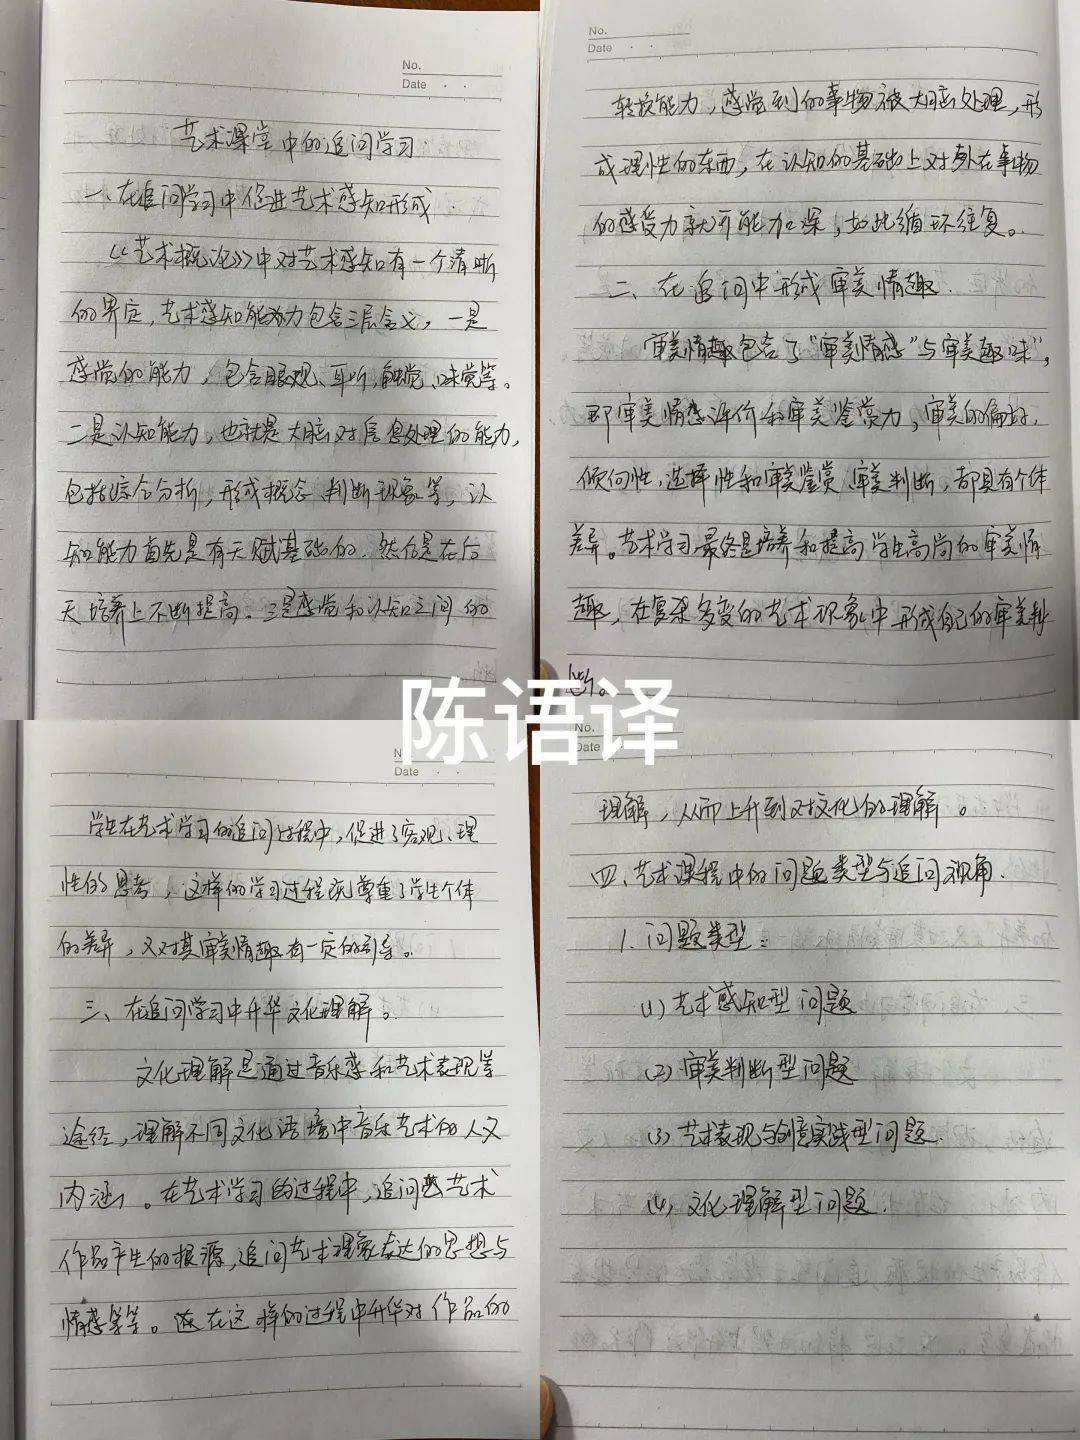 No.
Date
艺术课堂中的追问学习
一、在追问学习中促进艺术感知形成
《艺术概论》中对艺术感知有一个清晰
的界定，艺术感知能力包含三层含义，一是
感觉的能力，包含眼观、耳听、触觉、味觉等。
二是认知能力，也就是大脑对信息处理的能力，
包括综合分析，形成概念、判断现象等，认
知能力首先是有天赋基础的，然后是在后
天培养上不断提高。三是感觉和认知之间的
No.
Date
转换能力，感觉到的事物被大脑处理，形
成理性的东西，在认知的基础上对外在事物
的感受力就可能加深，如此循环往复。
二、在追问中形成审美情趣.
审美情趣包含了“审美情感”与审美趣味”，
即审美情感评价和审美鉴赏力，审美的偏好、
倾向性，选择性和审美鉴赏、审美判断，都具有个体
差异。艺术学习最终是培养和提高学生高尚的审美情
趣，在复杂多变的艺术现象中形成自己的审美判
断。
陈语译
Date
学生在艺术学习的追问过程中，促进了客观、理
性的思考，这样的学习过程既尊重了学生个体
的差异，又对其审美情趣有一定的引导。
三、在追问学习中升华文化理解。
文化理解是通过音乐感和艺术表现等
途径，理解不同文化语境中音乐艺术的人文
内涵。在艺术学习的过程中，追问艺术
作品产生的根源，追问艺术现象表达的思想与
情感等等。在这样的过程中升华对作品的
No.
Date
理解，从而上升到对文化的理解。
四、艺术课程中的问题类型与追问视角.
1.问题类型：
(1)艺术感知型问题
(2)审美判断型问题
(3)艺术表现与创意实践型问题.
(4)文化理解型问题.